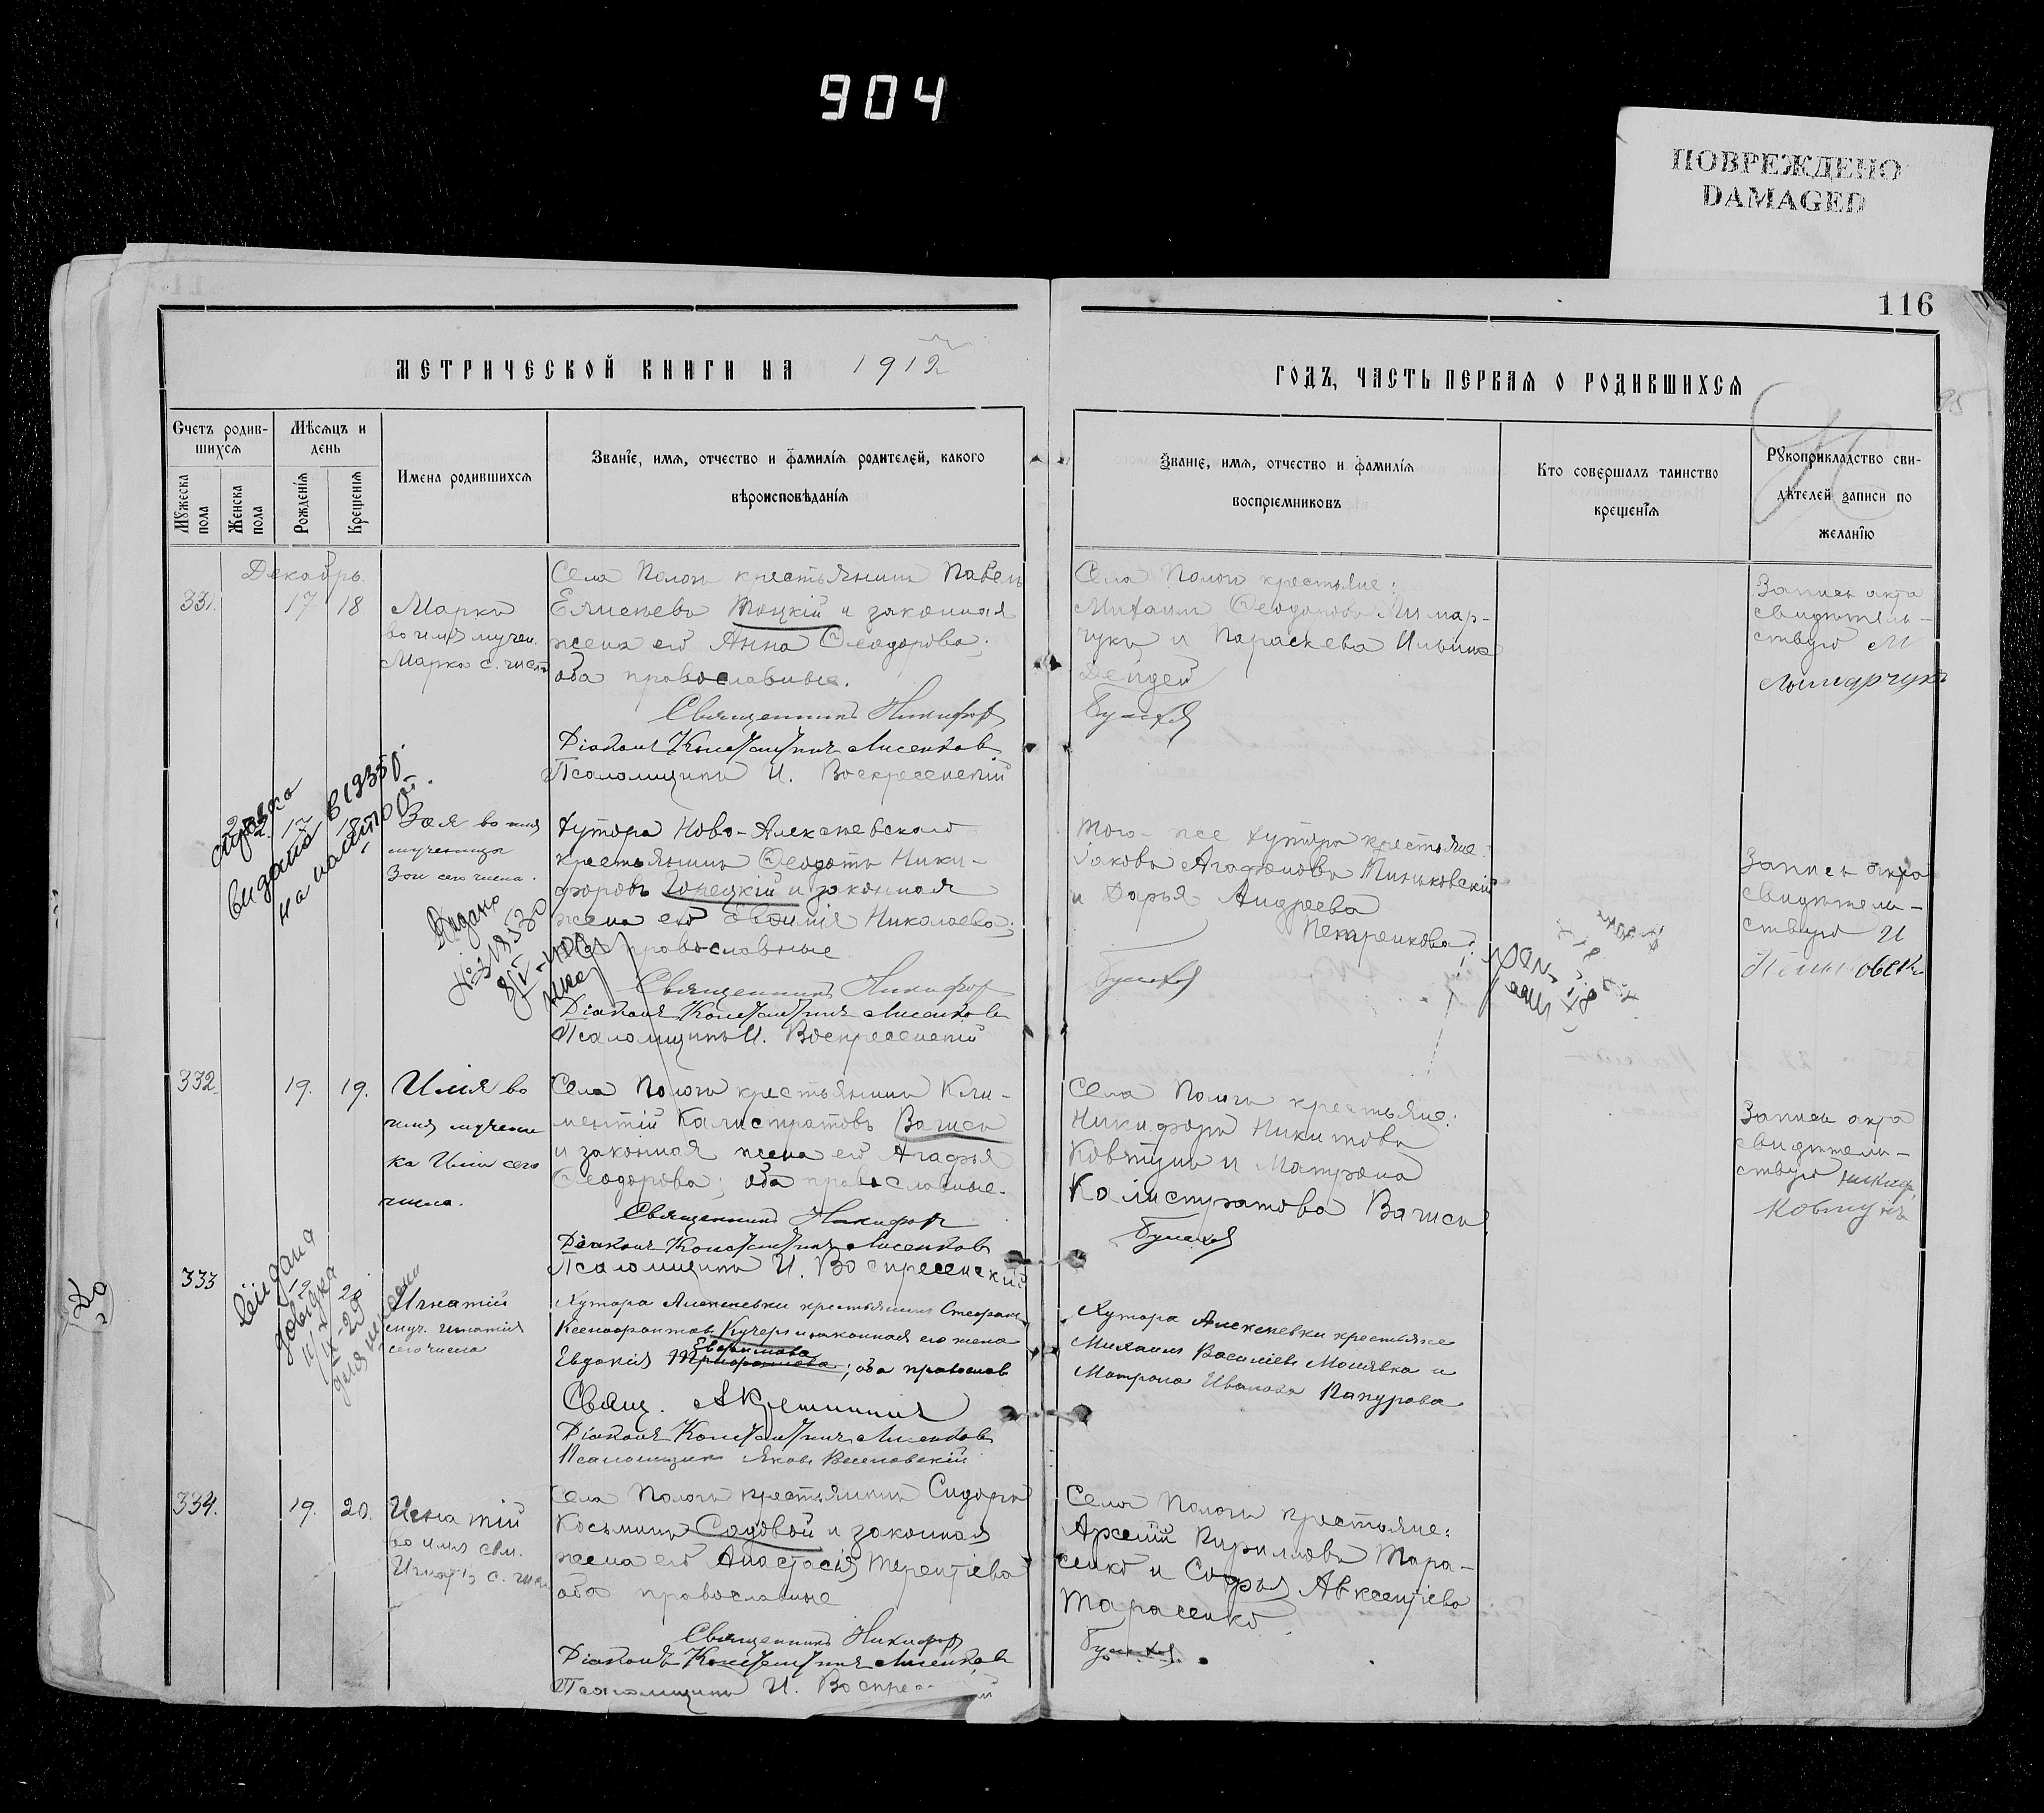 904
ПОВРЕЖДЕНО
DAMAGED
116
МЕТРИЧЕСКОЙ КНИГИ НА 1912
ГОДЪ, ЧАСТЬ ПЕРВАЯ О РОДИВШИХСЯ
95
Счетъ родив-
шихся
Мѣсяцъ и
день
Мужеска
пола
Женска
пола
Рожденія
Крещенія
Имена родившихся
Званіе, имя, отчество и фамилія родителей, какого
вѣроисповѣданія
Званіе, имя, отчество и фамилія
воспріемниковъ
Кто совершалъ таинство
крещенія
Рукоприкладство сви-
дѣтелей записи по
желанію
Декабрь
331. 17 18
Маркъ
во имя мучен.
Марка с. числа
Села Пологъ крестьянинъ Павелъ
Тоцкій и законная
жена его Анна Ѳеодорова;
оба православные.
Священникъ Никифоръ
Діаконъ Константинъ Лисенков
Псаломщикъ И. Воскресенскій
Села Пологъ крестьяне:
Михаилъ Ѳеодоровъ Лимар-
чукъ и Параскева Ильина
Дейдей
Запись акта
свидѣтель-
ствую М
Лымарчукъ
справка
видана в 1935 г.
17
Зоя во имя
мученицы
Зои сего числа.
Видано
№ 318530
Хутора Ново-Алексеевскаго
крестьянинъ Ѳеодотъ Ники-
форовъ и законная
жена его Евѳимія Николаева;
православные
Священникъ Никифоръ
Діаконъ Константинъ Лисенков
Псаломщикъ И. Воскресенскій
Того-же хутора крестьяне:
Іаковъ Агаѳоновъ
и Дарья Андреева
Петренкова.
Запись акта
свидѣтель-
ствую И
332. 19. 19.
Илія во
имя мучени
ка Иліи сего
числа.
Села Пологъ крестьянинъ Кли-
ментій Калистратовъ Вагисъ
и законная жена его Агафья
Ѳеодорова; оба православные.
Священникъ Никифоръ
Діаконъ Константинъ Лисенков
Псаломщикъ И. Воскресенскій
Села Пологъ крестьяне:
Никифоръ Никитовъ
Ковтунъ и Матрона
Калистратова Вагисъ
Запись акта
свидѣтель-
ствую Никиф.
Ковтунъ
333
Видана
довідка
Игнатій
муч. Игнатія
сего числа
Хутора Алексеевки крестьянинъ Стефанъ
Ксенофонтов Кучеръ и законная его жена
Евдокія Евѳимова; оба православ
Свящ.
Діаконъ Константинъ Лисенков
Псаломщикъ Яковъ
Хутора Алексеевки крестьяне
Михаилъ Василіевъ Молявка и
Матрона Иванова Папурова
334. 19. 20.
Игнатій
во имя свм.
Игнатія с. числ
Села Пологъ крестьянинъ Сидоръ
Косьминъ Садовой и законная
жена его Анастасія Терентіева
оба православные
Священникъ Никифоръ
Діаконъ Константинъ Лисенков
Псаломщикъ И. Воскрес
Села Пологъ крестьяне:
Арсеній Кириловъ Тара-
сенко и Софья Авксентіева
Тарасенко